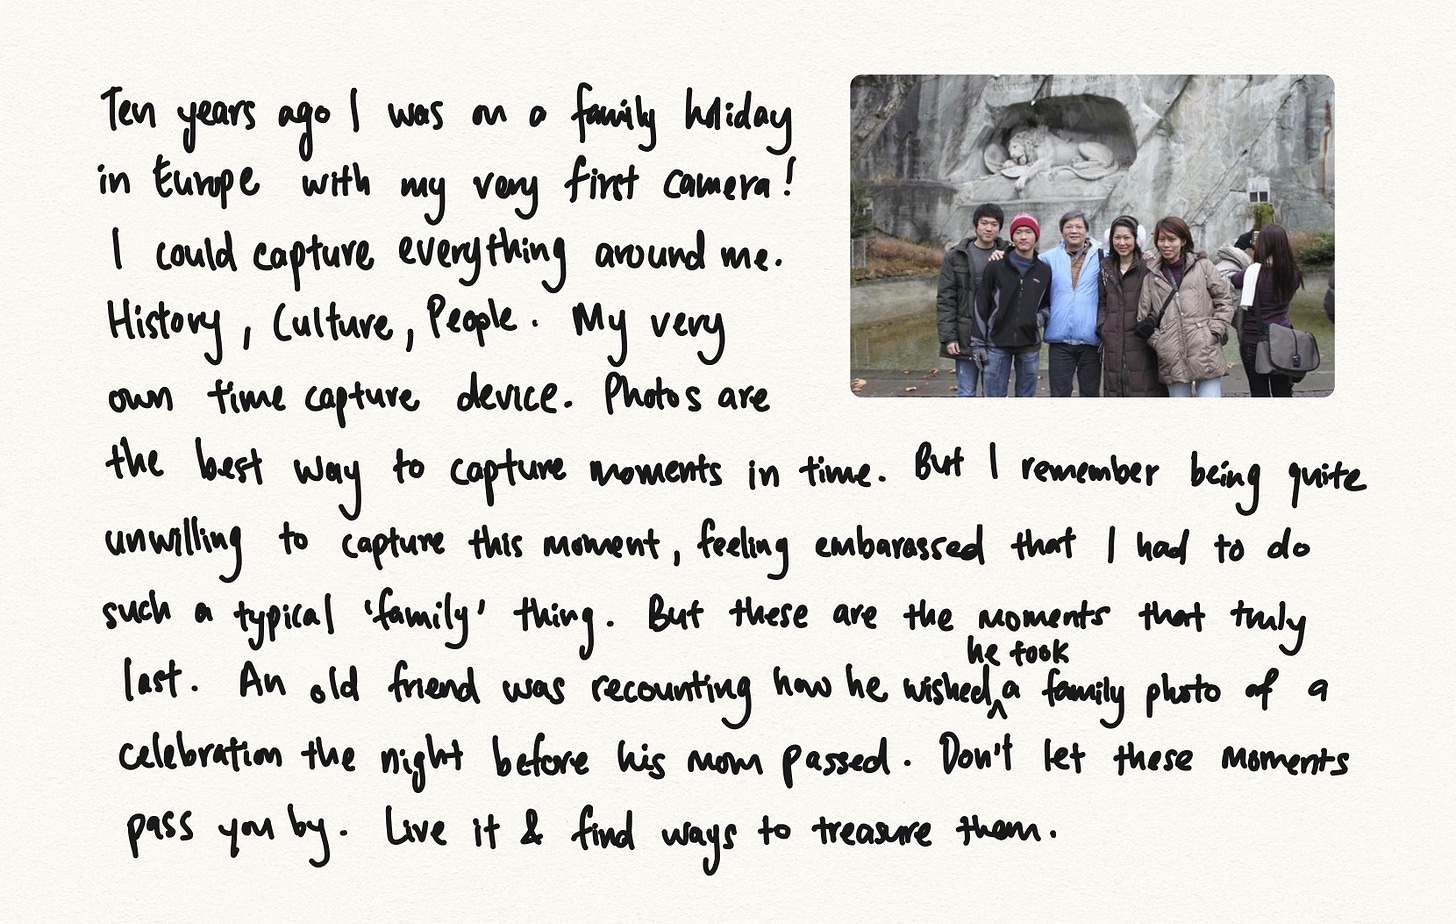 Ten years ago I was on a family holiday
in Europe with my very first camera!
I could capture everything around me.
History, Culture, People. My very
own time capture device. Photos are
the best way to capture moments in time. But I remember being quite
unwilling to capture this moment, feeling embarassed that I had to do
such a typical 'family' thing. But these are the moments that truly
last. An old friend was recounting how he wished he took a family photo of a
celebration the night before his mom passed. Don't let these moments
pass you by. Live it & find ways to treasure them.